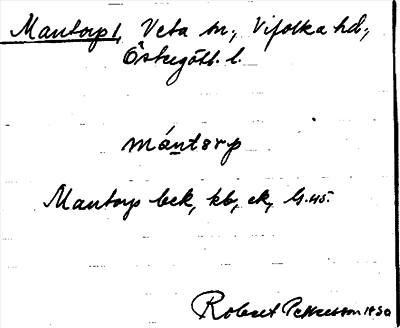 Mantorp 1, Veta sn, Vifolka hd,
Östergötl. l.
mántorp
Mantorp bek, kb, ek,
Robert Pettersson 1930